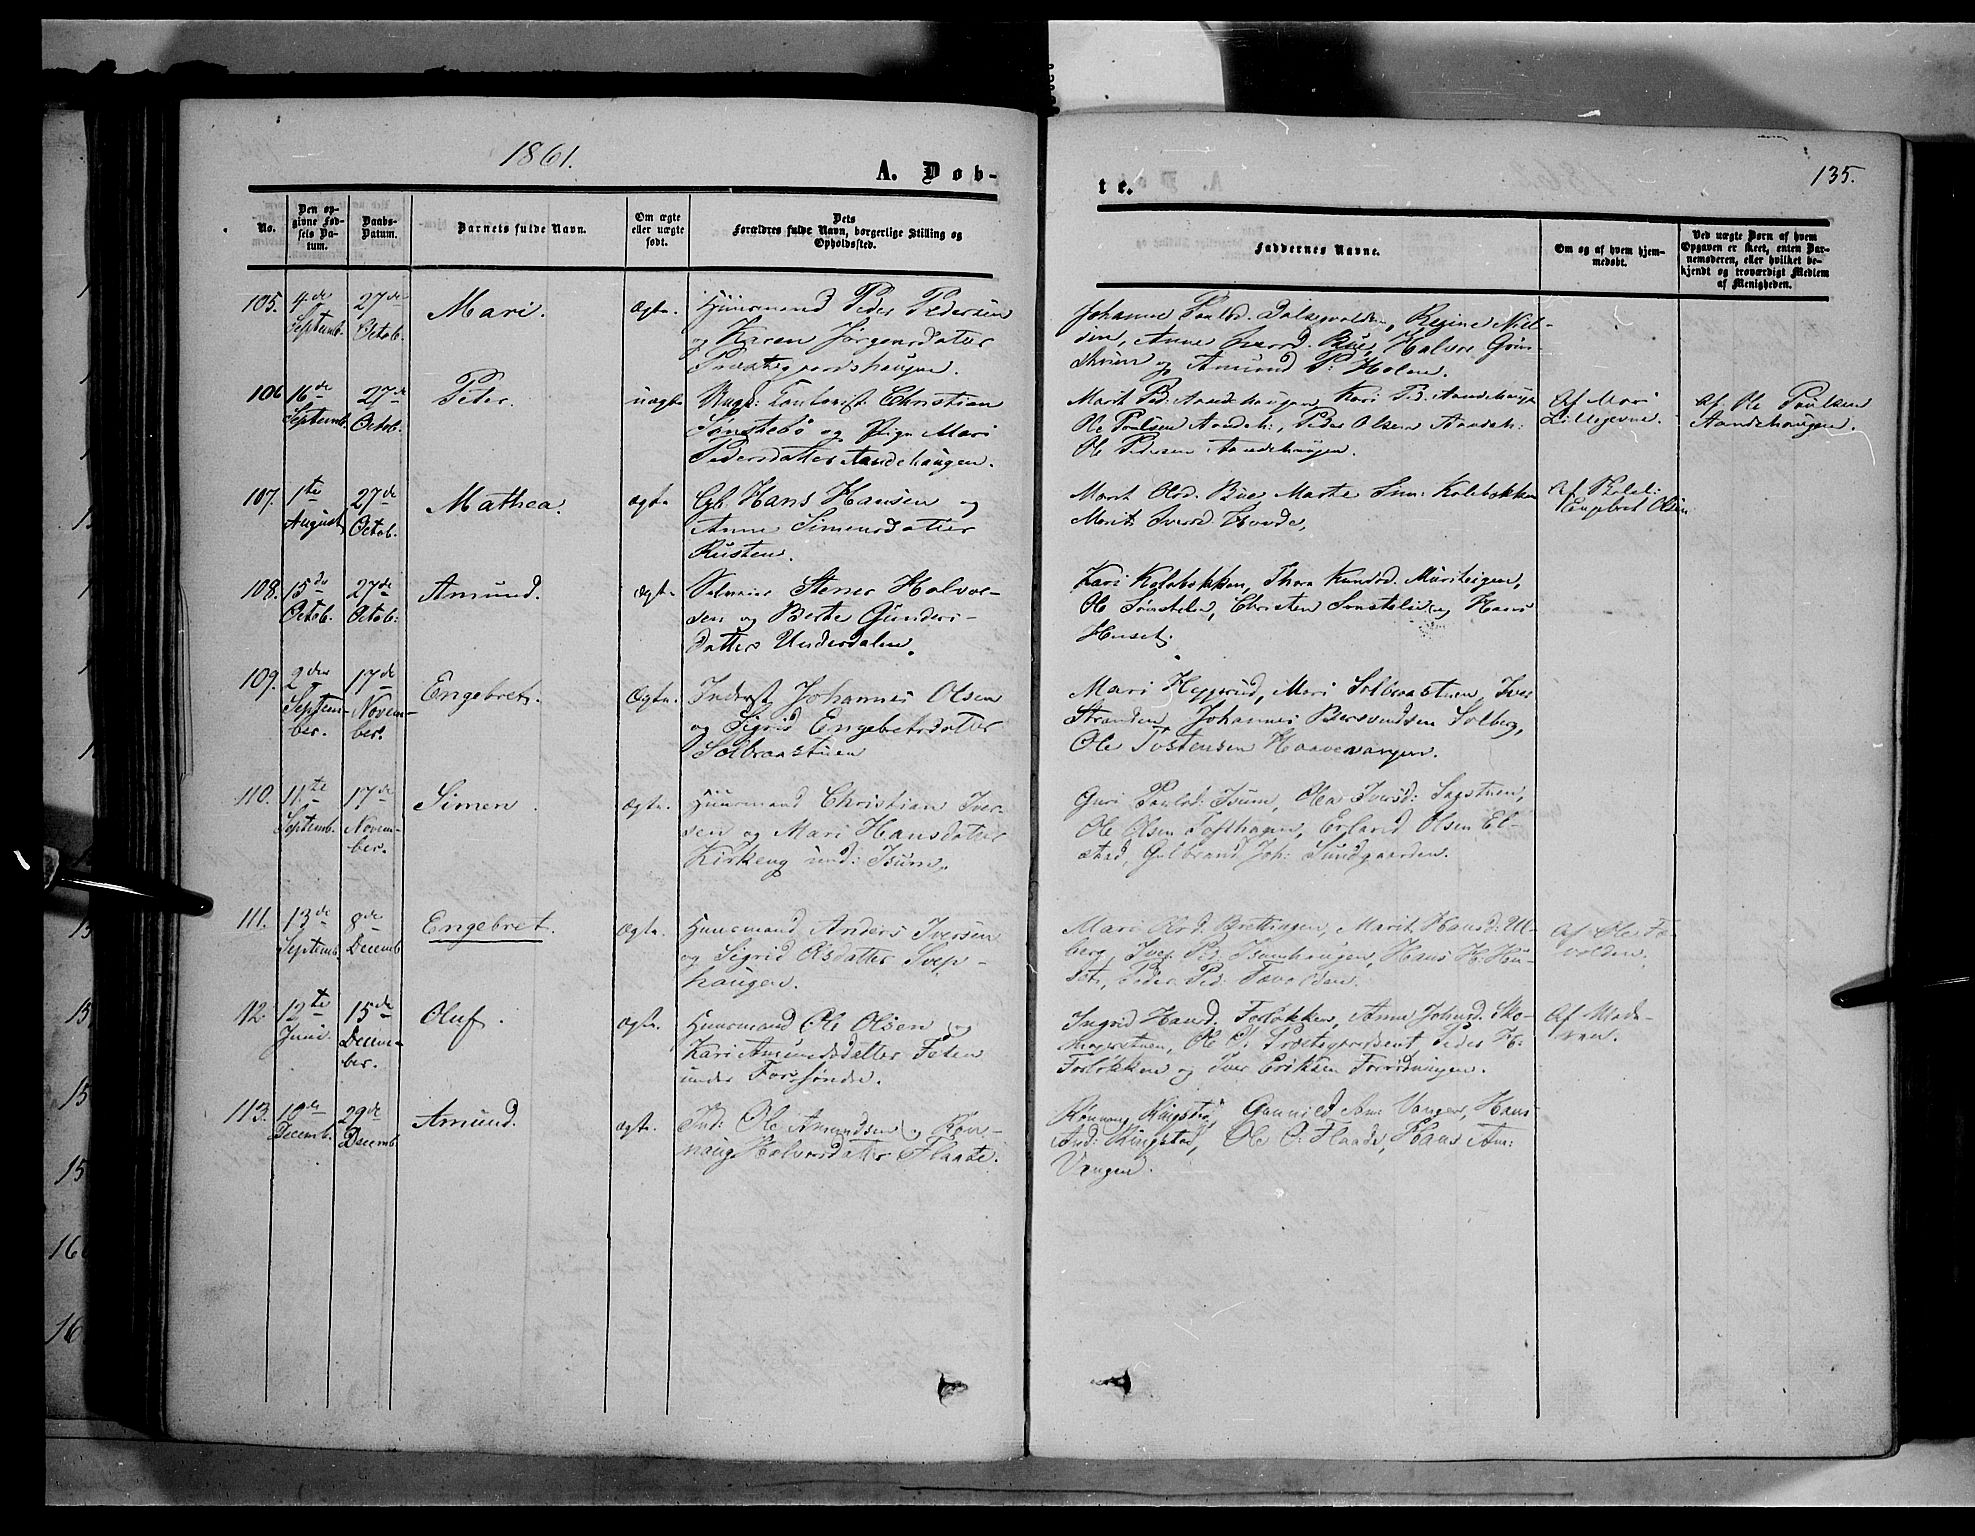 1861.
A. Døb-
te.
135.
No.
Den op-
givne Fød-
sels Da-
tum.
Daabs-
Datum.
Barnets fulde Navn.
Om ægte
eller uægte
født.
Dets
Forældres fulde Navn, borgerlige Stilling og
Opholdssted.
Faddernes Navne.
Om og af hvem hjem-
medøbt.
Ved uægte Børn af hvem
Opgaven er skeet, enten Bar-
nemoderen, eller hvilket be-
kjendt og troværdigt Medlem
af Menigheden.
105. 4de Septemb. 27de Octob. Mari. Ægte. Huusmand Peder Pedersen
og Karen Jørgensdatter
Præstegaardshaugen.
Johanne Regine Niel-
sen, Anne Halvor
og Amund P. Holen.
106 16de Septemb. 27de Octob. Peter. uægte Ungk: Christian
Sønstebø og Pige Mari
Pedersdatter Aandehaugen.
Marit P: Aandehaugen, Kari P: Aandehaugen
Ole Poulsen Aandeh:, Peder Olsen Aandeh:
Ole Pedersen Aandehaugen.
Af Mari
Lillegevne.
af Ole Paulsen
Aandehaugen.
107. 1te August 27de Octob. Mathea. ægte Gb. Hans Hansen og
Anne Simensdatter
Rusten.
Marit Olsd. Bue Marte Sim: Kolobakken
Marit Iversd.
Af
Engebret Olsen
108. 15de Octob. 27de Octob: Amund. ægte. Selveier Stener Halvor-
sen og Berte Gunders-
datter Underdalen.
Kari Kolobakken, Thora Knudsd.
Ole Christen og Hans
Huset.
109. 2den Septem-
ber. 17de Novem-
ber. Engebret. Ægte. Inderst Johannes Olsen
og Sigrid Engebretsdatter
Solbraastuen
Mari Heggerud, Mari Solbraastuen, Iver
Stranden, Johannes Solberg,
Ole Tostensen
110. 11te Septemb. 17de Novem-
ber. Simen. Ægte. Huusmand Christian Iver-
sen og Mari Hansdatter
Kirkeng und: Isum.
Guri Paulsd: Isum, Olea Iversd: Sagstuen,
Ole Olsen Tofthagen, Erland Olsen El-
stad, Gulbrand Joh: Sundgaarden.
111. 13de Septemb 8de Decemb Engebret. Ægte. Huusmand Anders Iversen
og Sigrid Olsdatter Svep-
haugen.
Mari Olsd. Brettingen, Marit Hansd: Ul-
berg, Iver Ped: Isumhaugen, Hans H: Hu-
set, Peder Ped:
Af Ole
112. 12te Juni. 15de Decem-
ber. Oluf. Ægte. Huusmand Ole Olsen og
Kari Amundsdatter Feten
under Forrsøndre.
Ingrid Hansd. Forløkken, Anne Johnsd.
Ole O: Peder H:
Forløkken og Iver Eriksen
Af Mode-
ren.
113. 10de Decemb. 29de Decemb Amund. ægte. Ind: Ole Amundsen og Røn-
naug Halvorsdatter Flaate.
Rønnaug Ringstad, Gunnild Am: Vangen, Hans
And: Ringstad, Ole O: Flaate, Hans Am:
Vangen.